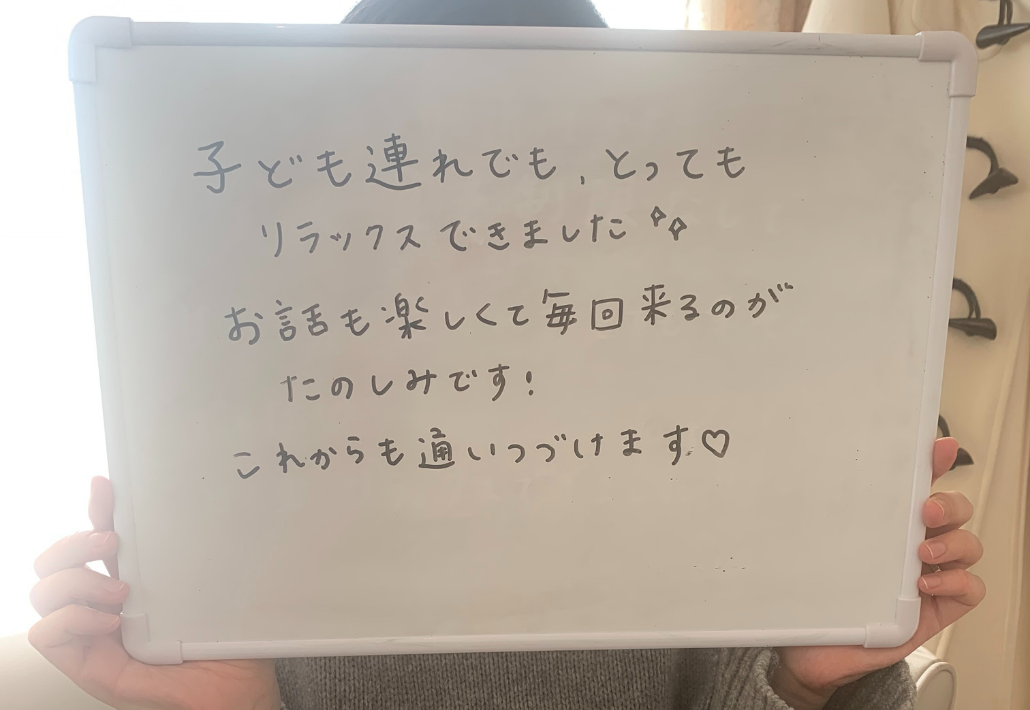 子ども連れでも、とっても
リラックスできました✧✧
お話も楽しくて毎回来るのが
たのしみです!
これからも通いつづけます♡